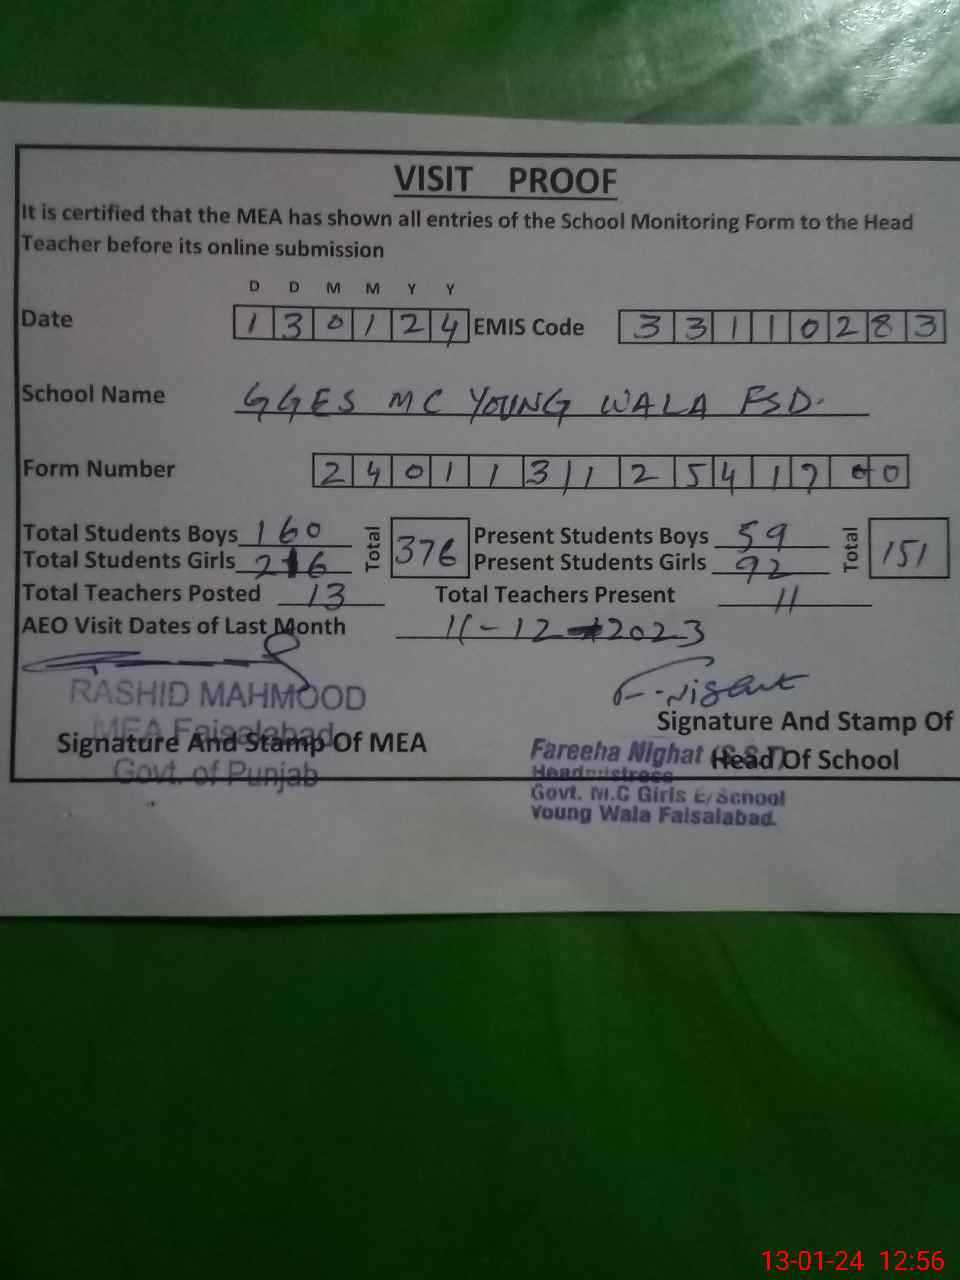 VISIT PROOF
It is certified that the MEA has shown all entries of the School Monitoring Form to the Head
Teacher before its online submission
D D M M Y Y
Date 1 3 0 1 2 4 EMIS Code 3 3 1 1 0 2 8 3
School Name GGES MC YOUNG WALA FSD.
Form Number 2 4 0 1 1 3 1 1 2 5 4 1
Total Students Boys 160 Total 376 Present Students Boys 59 Total 151
Total Students Girls 216 Present Students Girls 92
Total Teachers Posted 13 Total Teachers Present 11
AEO Visit Dates of Last Month 11-12-2023
RASHID MAHMOOD
MEA Faisalabad
Signature And Stamp Of MEA
Govt. of Punjab
F. Nighat
Signature And Stamp Of
Head Of School
Fareeha Nighat (S.S.T)
Headmistress
Govt. M.C Girls E/School
Young Wala Faisalabad.
13-01-24 12:56